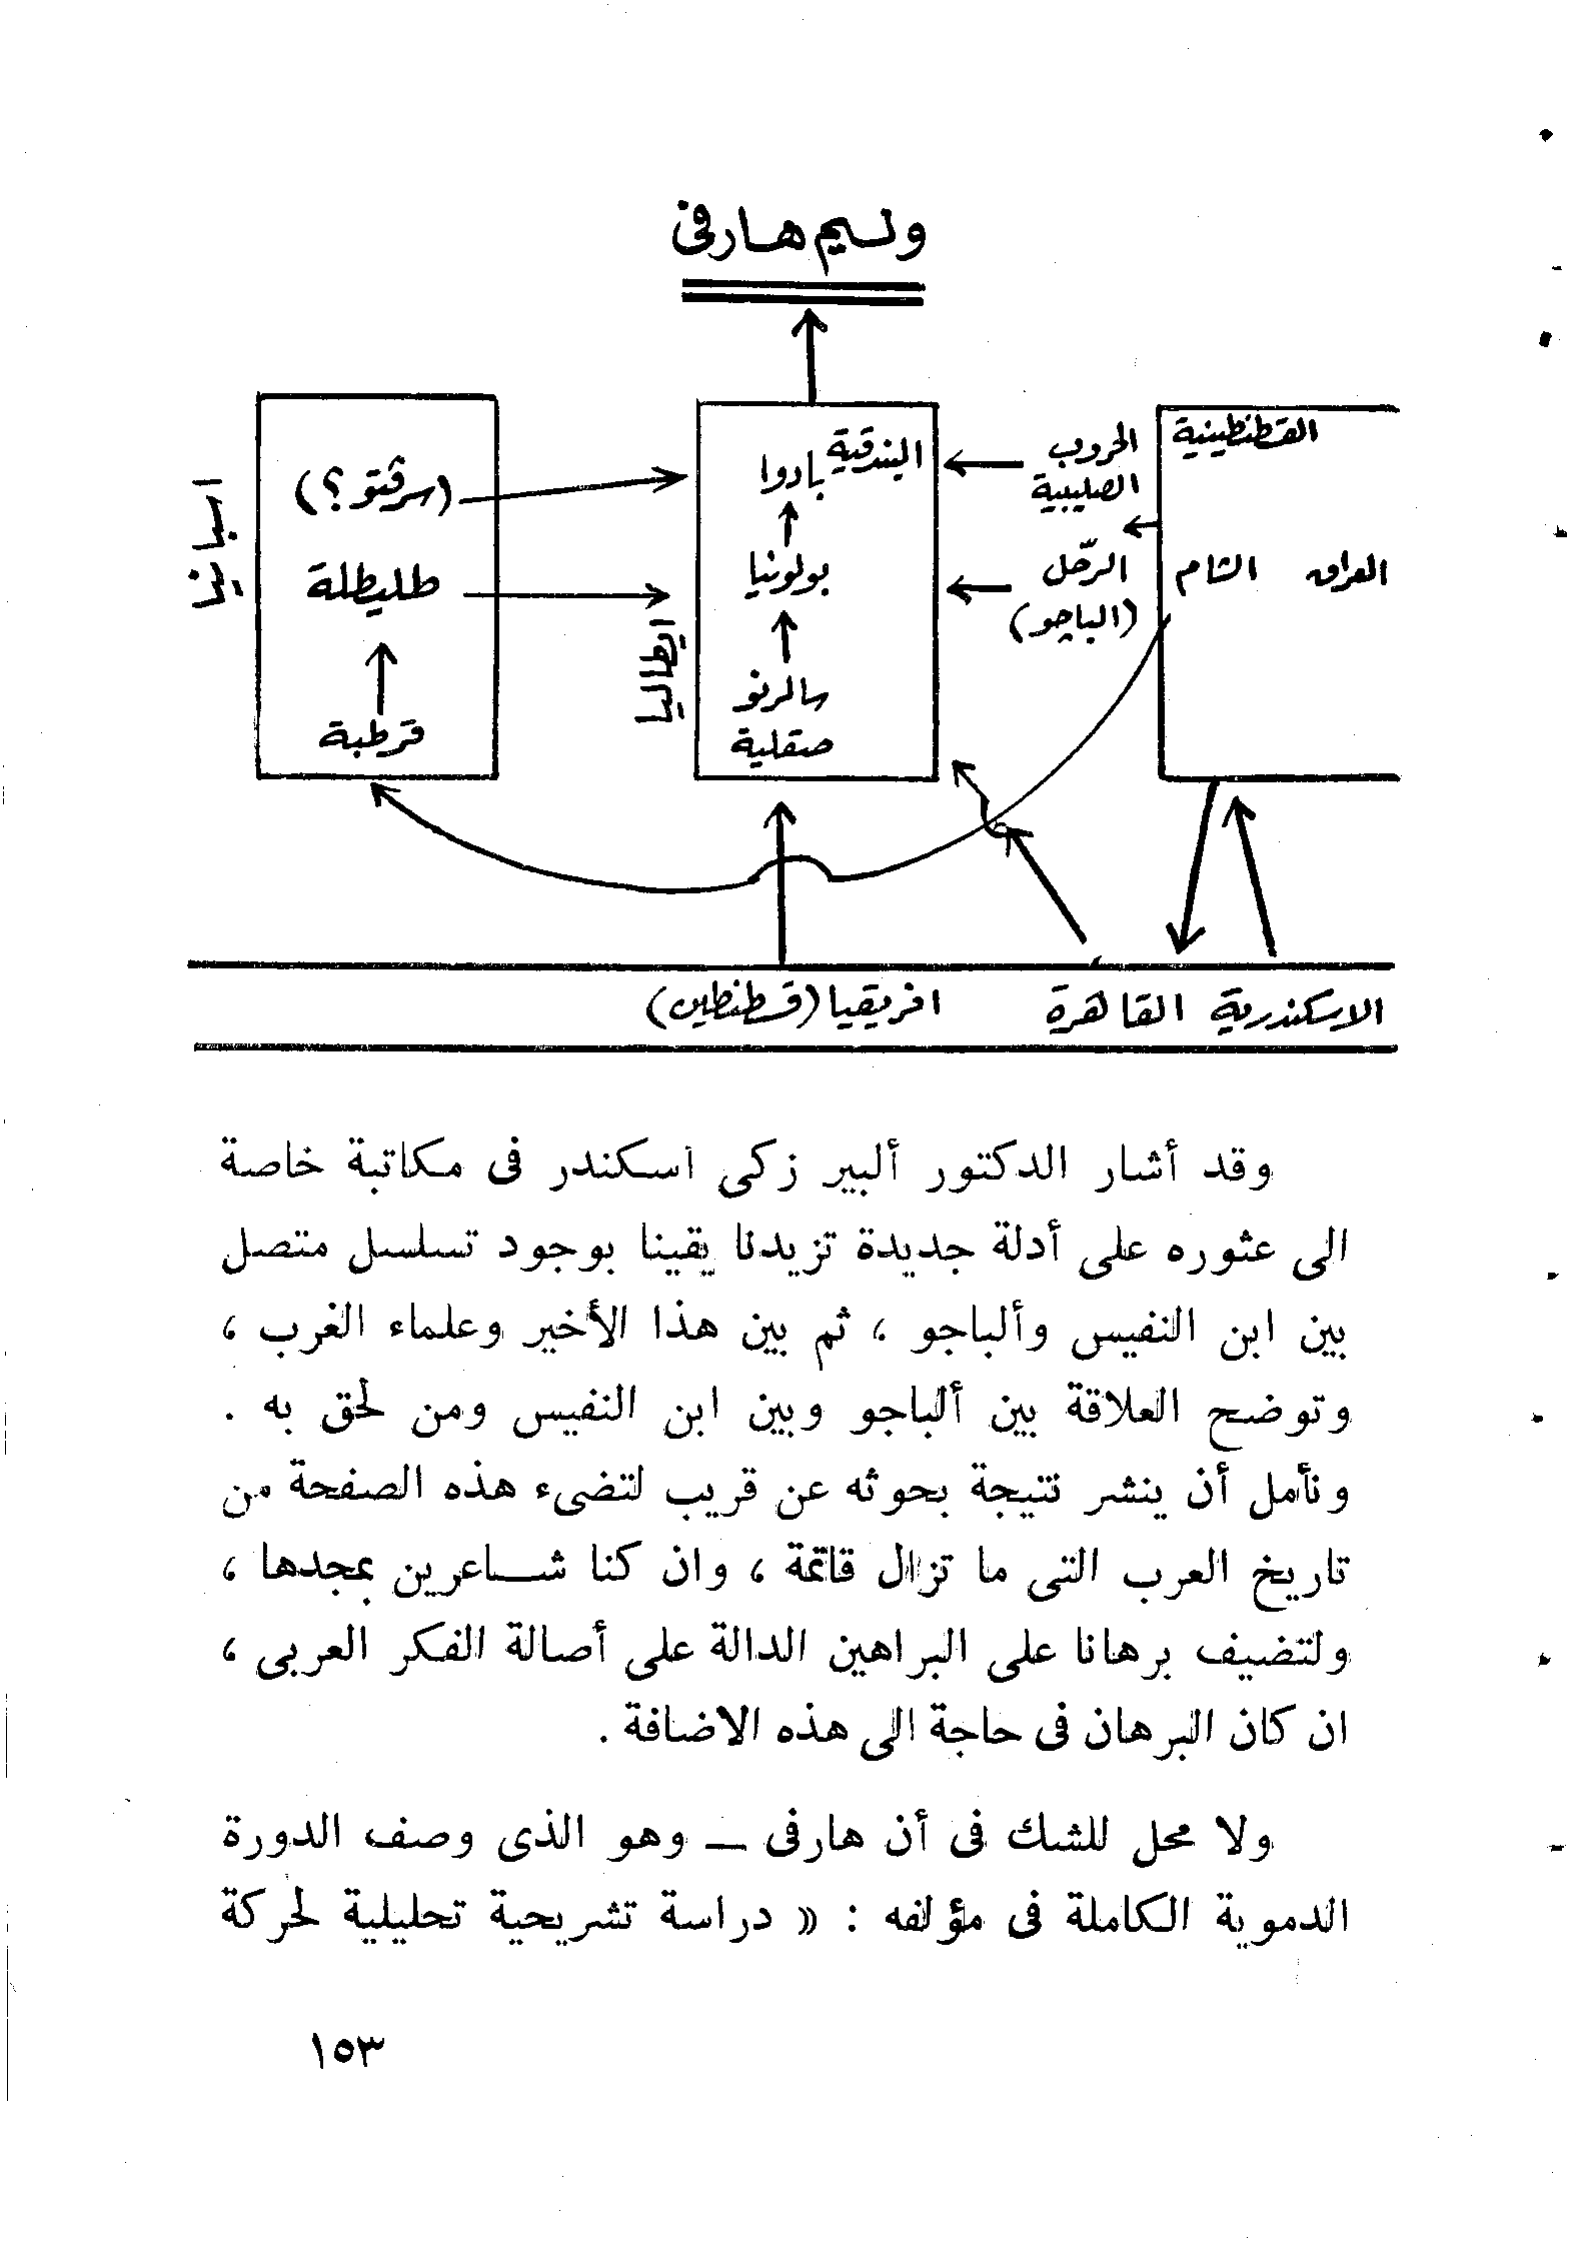 وليم هارفى
القسطنطينية
العراق الشام
الحروب
الصليبية
الرحّل
(الباجو)
البندقية
بادوا
بولونيا
سالرنو
صقلية
ايطاليا
(سرڤتو؟)
طليطلة
قرطبة
اسبانيا
الاسكندرية القاهرة افريقيا (قسطنطين)
وقد أشار الدكتور ألبير زكى اسكندر فى مكاتبة خاصة
الى عثوره على أدلة جديدة تزيدنا يقينا بوجود تسلسل متصل
بين ابن النفيس وألباجو ، ثم بين هذا الأخير وعلماء الغرب ،
وتوضح العلاقة بين ألباجو وبين ابن النفيس ومن لحق به .
ونأمل أن ينشر نتيجة بحوثه عن قريب لتضىء هذه الصفحة من
تاريخ العرب التى ما تزال قاتمة ، وان كنا شاعرين بمجدها ،
ولتضيف برهانا على البراهين الدالة على أصالة الفكر العربى ،
ان كان البرهان فى حاجة الى هذه الاضافة .
ولا محل للشك فى أن هارفى — وهو الذى وصف الدورة
الدموية الكاملة فى مؤلفه : « دراسة تشريحية تحليلية لحركة
١٥٣